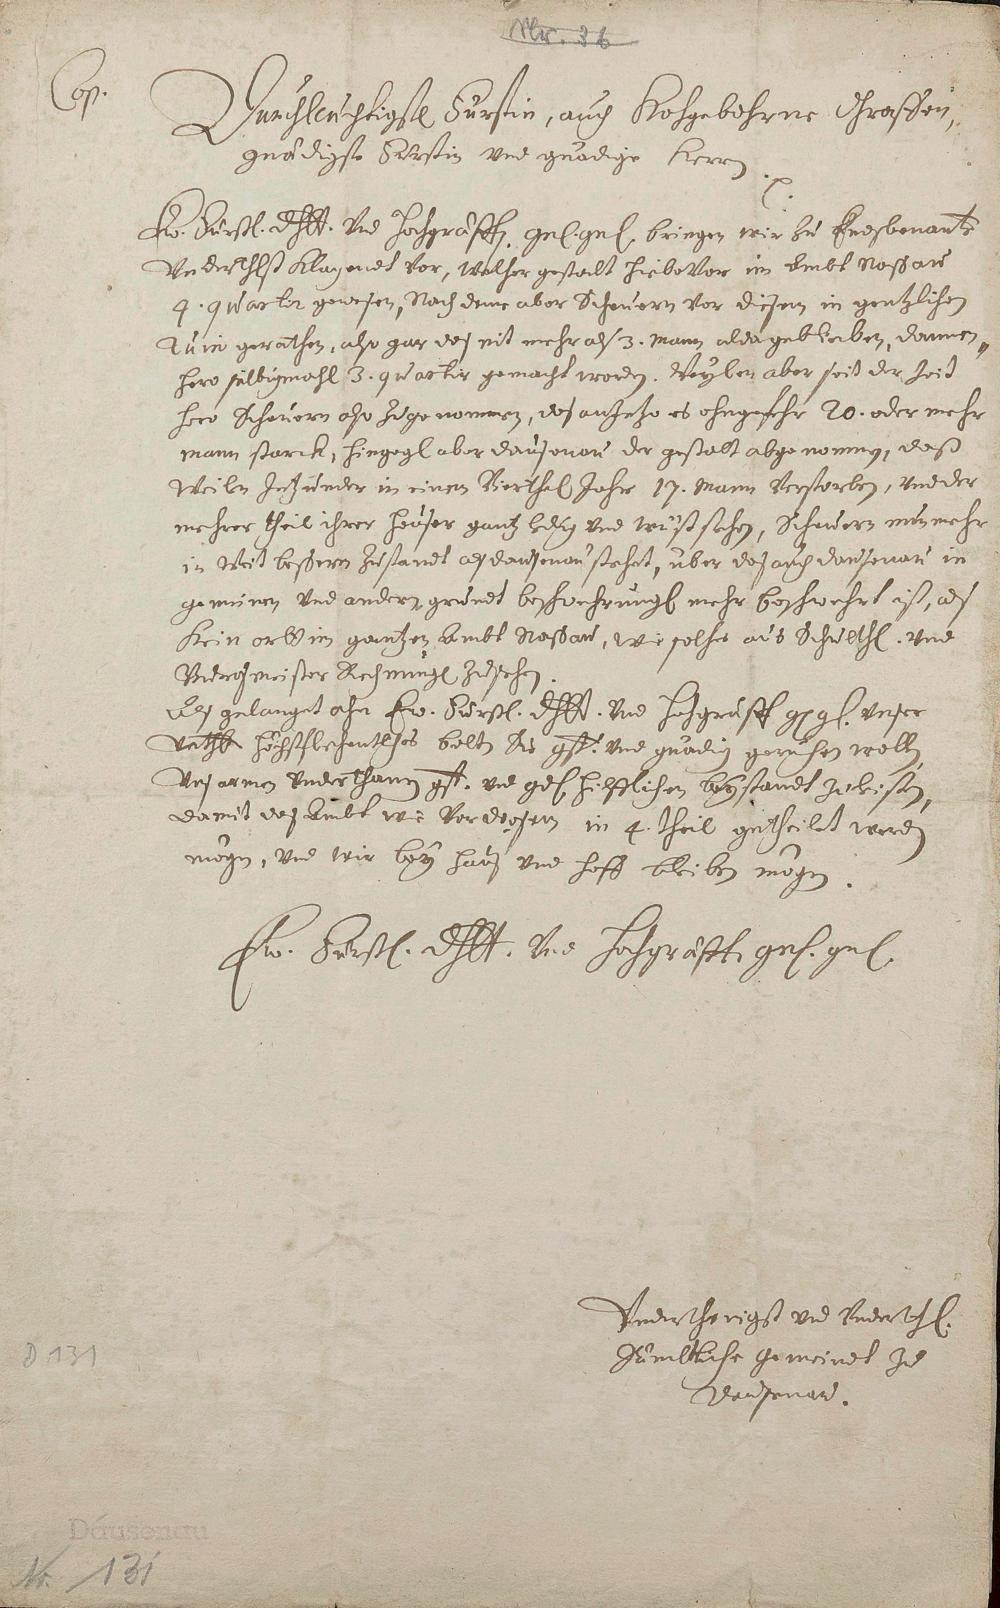 Nr. 36
Cop.
Durchleuchtigste Fürstin, auch Hochgebohrne Graffen,
gnädigste Fürstin und gnädige Herrn
Ew. Fürstl. Dhlt. Und Hochgräffl. bringen wir zu Endsbenante
Underthlst Klagendt Vor, Welcher gestalt hiebeVor im Ambt Naßau
4. quartir gewesen, Nach deme aber Scheuern Vor diesem in gentzlichen
Ruin gerathen, also gar das nit mehr als 3. Mann alda geblieben, dannen„
hero selbigmahl 3. quartir gemacht worden. Weylen aber seit der Zeit
hero Scheuern also zugenommen, das anjetzo es ohngefehr 20. oder mehr
mann starck, hingegen aber dausenau der gestalt abgenommen, daß
Weiln Jetzunder in einem Vierthel Jahr 17. Mann Verstorben, Und der
mehrer theil ihrer heuser gantz ledig Und wüst stehen, Scheuern nunmehr
in Weit beßerm Zustandt als dausenau stehet, über das auch dausenau in
gemeinen Und andern grundt beschwehrungen mehr beschwehrt ist, als
Kein orth im gantzen Ambt Naßau, wie solches aus Schulthl. Und
Burgermeister Rechnungen zu sehen.
Als gelanget ahn Ew. Fürstl. Dhlt. Und Hochgräffl. unser
höchstflehentliches bitten Sie gst. Und gnädig geruhen wollen,
Uns armen Underthanen gst. und hilfflichen beystandt zu leisten,
damit das Ambt wie Vor diesem in 4. theil getheilet werden
mögen, Und wir bey hauß und hoff bleiben mögen.
Ew. Fürstl. Dhlt. Und Hochgräffl.
Underthenigst und Underthl.
Sämbtliche Gemeindt zu
Dausenau.
D 131
Dausenau
Nr. 131